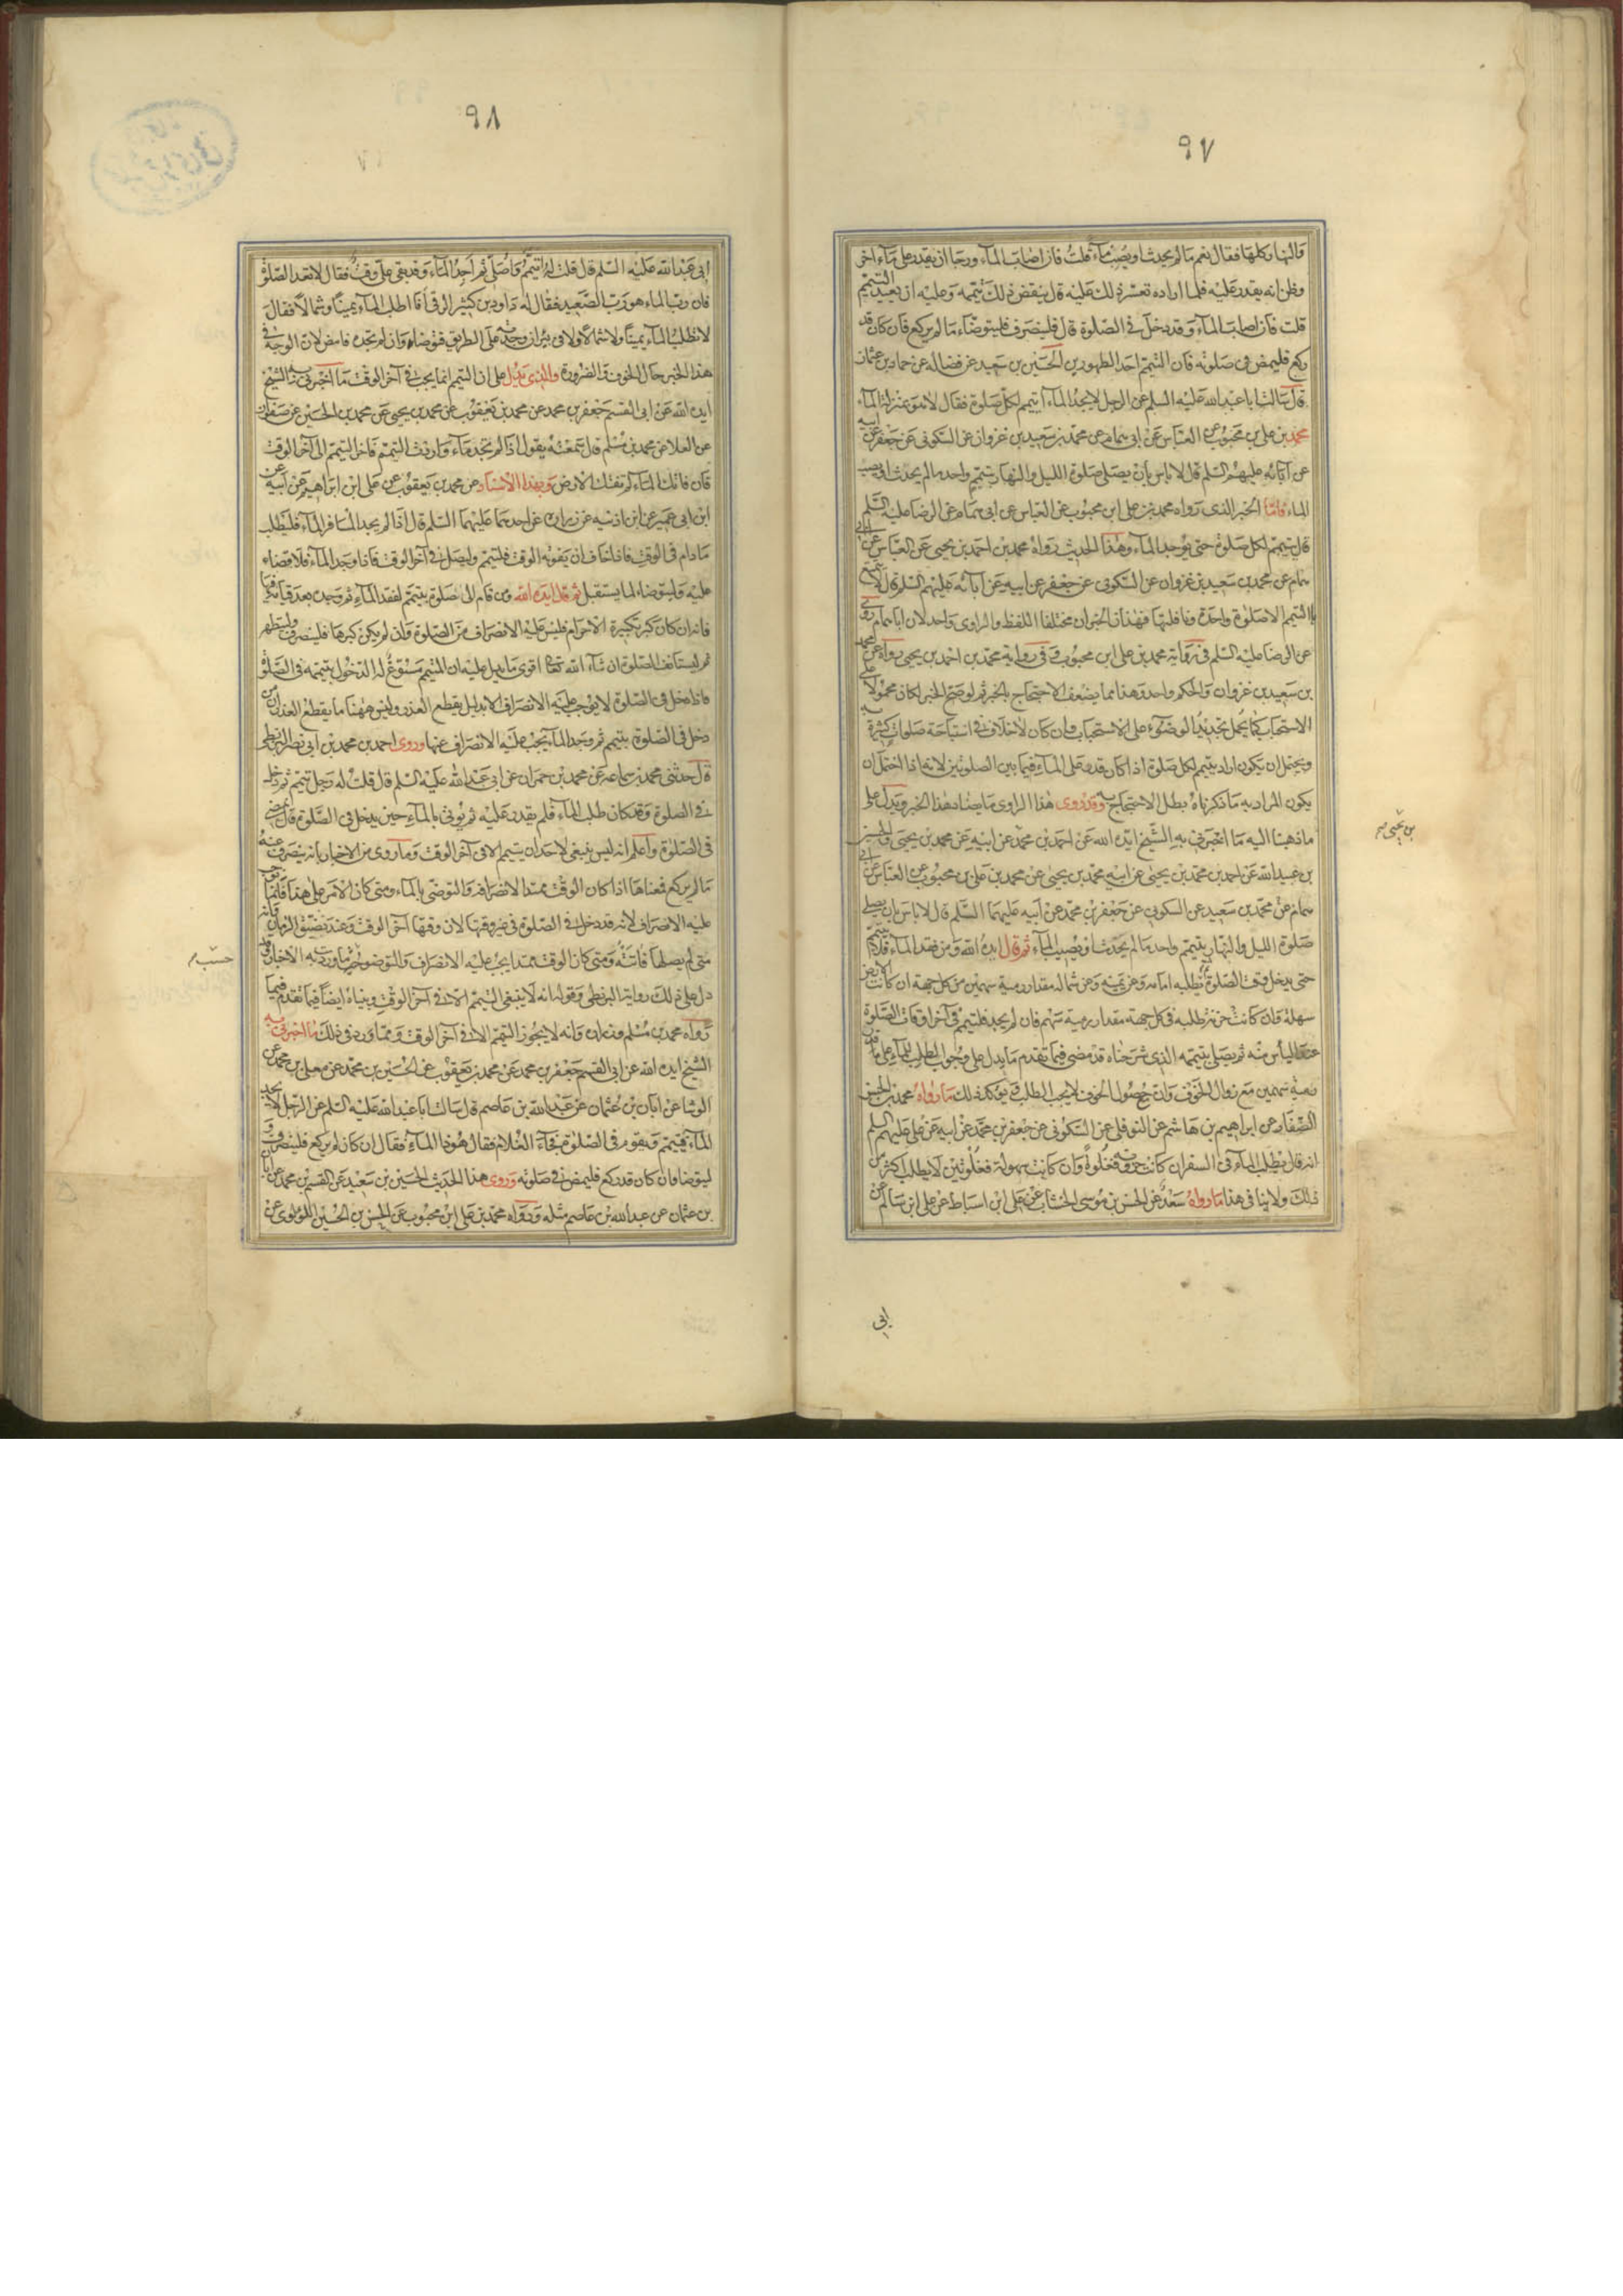 ٩٧
والنهار كلها فقال نعم ما لم يحدث او يصيب ماء قلت فان اصاب الماء ورجا ان يقدر على ماء اخر
وظن انه يقدر عليه فلما اراده تعسر ذلك عليه قال ينقض ذلك تيممه وعليه ان يعيد التيمم
قلت فان اصاب الماء وقد دخل في الصلوة قال فلينصرف فليتوضاء ما لم يركع فان كان قد
ركع فليمض في صلوته فان التيمم احد الطهورين الحسين بن سعيد عن فضاله عن حماد بن عثمان
قال سالت ابا عبد الله عليه السلم عن الرجل لا يجد الماء ايتيمم لكل صلوة فقال لا هو بمنزلة الماء
محمد بن علي بن محبوب عن العباس عن ابي همام عن محمد بن سعيد بن غزوان عن السكوني عن جعفر عن ابيه
عن آبائه عليهم السلم قال لا باس بان يصلي صلوة الليل والنهار بتيمم واحد ما لم يحدث او يصيب
الماء فاما الخبر الذي رواه محمد بن علي ابن محبوب عن العباس عن ابي همام عن الرضا عليه السلم
قال يتيمم لكل صلوة حتى يوجد الماء وهذا الحديث رواه محمد بن احمد بن يحيى عن العباس عن ابي
همام عن محمد بن سعيد بن غزوان عن السكوني عن جعفر عن ابيه عن آبائه عليهم السلم قال لا يتمتع
بالتيمم الا صلوة واحدة ونافلتها فهذان الخبران مختلفا اللفظ والراوي واحد لان ابا همام روى
عن الرضا عليه السلم في رواية محمد بن علي ابن محبوب وفي رواية محمد بن احمد بن يحيى رواه عن محمد
بن سعيد بن غزوان والحكم واحد وهذا مما يضعف الاحتجاج بالخبر ثم لو صح الخبر لكان محمولا على
الاستحباب كما يحمل تجديد الوضوء على الاستحباب وان كان لا خلاف في استباحة صلوات كثيرة به
ويحتمل ان يكون اراد يتيمم لكل صلوة اذا كان قدر على الماء فيما بين الصلوتين لانه اذا احتمل ان
يكون المراد به ما ذكرناه بطل الاحتجاج به وقد روى هذا الراوي ما يضاد هذا الخبر ويدل على
ما ذهبنا اليه ما اخبرني به الشيخ ايده الله عن احمد بن محمد عن ابيه عن محمد بن يحيى والحسين
بن عبيد الله عن احمد بن محمد بن يحيى عن ابيه محمد بن يحيى عن محمد بن علي بن محبوب عن العباس عن ابي
همام عن محمد بن سعيد عن السكوني عن جعفر بن محمد عن ابيه عليهما السلم قال لا باس بان يصلي
صلوة الليل والنهار بتيمم واحد ما لم يحدث او يصيب الماء ثم قال ايده الله ومن فقد الماء فلا يتيمم
حتى يدخل وقت الصلوة ثم يطلبه امامه وعن يمينه وعن شماله مقدار رمية سهمين من كل جهة ان كانت الارض
سهلة فان كانت حزنة طلبه في كل جهة مقدار رمية سهم فان لم يجد فليتيمم في آخر اوقات الصلوة
عند الياس منه ثم يصلي بتيممه الذي شرحناه قد مضى فيما تقدم ما يدل على وجوب الطلب للماء على ما قدر
رمية سهمين مع زوال الخوف وان مع حصول الخوف لا يجب الطلب ويؤكد ذلك ما رواه محمد بن الحسن
الصفار عن ابراهيم بن هاشم عن النوفلي عن السكوني عن جعفر بن محمد عن ابيه عن علي عليهم السلم
انه قال يطلب الماء في السفر ان كانت حزونة فغلوة وان كانت سهولة فغلوتين لا يطلب اكثر من
ذلك ولا ينافي هذا ما رواه سعد عن الحسن بن موسى الخشاب عن علي ابن اسباط عن علي ابن سالم عن
بن يحيى صح
ابي
٩٨
ابي عبد الله عليه السلم قال قلت له اتيمم واصلي ثم اجد الماء وقد بقي علي وقت فقال لا تعد الصلوة
فان رب الماء هو رب الصعيد فقال له داود بن كثير الرقي افاطلب الماء يمينا وشمالا فقال
لا تطلب الماء يمينا ولا شمالا ولا في بئر ان وجدته على الطريق فتوضا وان لم تجده فامض لان الوجه في
هذا الخبر حال الخوف والضرورة والذي يدل على ان التيمم انما يجب في آخر الوقت ما اخبرني به الشيخ
ايده الله عن ابي القسم جعفر بن محمد عن محمد بن يعقوب عن محمد بن يحيى عن محمد بن الحسين عن صفوان
عن العلا عن محمد بن مسلم قال سمعته يقول اذا لم تجد ماء واردت التيمم فاخر التيمم الى آخر الوقت
فان فاتك الماء لم تفتك الارض وبهذا الاسناد عن محمد بن يعقوب عن علي ابن ابراهيم عن ابيه عن
ابن ابي عمير عن ابن اذينه عن زراره عن احدهما عليهما السلم قال اذا لم يجد المسافر الماء فليطلب
ما دام في الوقت فاذا خاف ان يفوته الوقت فليتيمم وليصل في آخر الوقت فاذا وجد الماء فلا قضاء
عليه وليتوضاء لما يستقبل ثم قال ايده الله ومن قام الى صلوة بتيمم لفقد الماء ثم وجده بعد قيامه فيها
فانه ان كان كبر تكبيرة الاحرام فليس عليه الانصراف من الصلوة وان لم يكن كبرها فلينصرف وليتطهر
ثم ليستانف الصلوة ان شاء الله تعالى اقوى ما يدل عليه ان المتيمم مسوغ له الدخول بتيممه في الصلوة
فاذا دخل في الصلوة لا يوجب عليه الانصراف الا بدليل يقطع العذر وليس ههنا ما يقطع العذر ان من
دخل في الصلوة بتيمم ثم وجد الماء يجب عليه الانصراف عنها وروى احمد بن محمد بن ابي نصر البزنطي
قال حدثني محمد بن سماعه عن محمد بن حمران عن ابي عبد الله عليه السلم قال قلت له رجل تيمم ثم دخل
في الصلوة وقد كان طلب الماء فلم يقدر عليه ثم يؤتى بالماء حين يدخل في الصلوة قال يمضي
في الصلوة واعلم انه ليس ينبغي لاحد ان يتيمم الا في آخر الوقت وما روى من الاخبار بانه ينصرف عنه
ما لم يركع فمعناها اذا كان الوقت ممتدا لانصرافه والتوضي بالماء ومتى كان الامر على هذا فانما يجب
عليه الانصراف لانه قد دخل في الصلوة في غير وقتها لان وقتها آخر الوقت وعند تضيق الزمان فانه
متى لم يصلها فاتته ومتى كان الوقت ممتدا يجب عليه الانصراف والتوضو حسب ما وردت به الاخبار وقد
دل على ذلك رواية البزنطي وقوله انه لا ينبغي التيمم الا في آخر الوقت وبيناه ايضا فيما تقدم فيما
رواه محمد بن مسلم وزراره وانه لا يجوز التيمم الا في آخر الوقت ومما ورد في ذلك ما اخبرني به
الشيخ ايده الله عن ابي القسم جعفر بن محمد عن محمد بن يعقوب عن الحسين بن محمد عن معلى بن محمد عن
الوشا عن ابان بن عثمان عن عبد الله بن عاصم قال سالت ابا عبد الله عليه السلم عن الرجل لا يجد
الماء فيتيمم ويقوم في الصلوة فجاء الغلام فقال هوذا الماء فقال ان كان لم يركع فلينصرف و
ليتوضا وان كان قد ركع فليمض في صلوته وروى هذا الحديث الحسين بن سعيد عن القسم بن محمد عن ابان
بن عثمان عن عبد الله بن عاصم مثله ورواه محمد بن علي ابن محبوب عن الحسن بن الحسين اللولوي عن
حسب